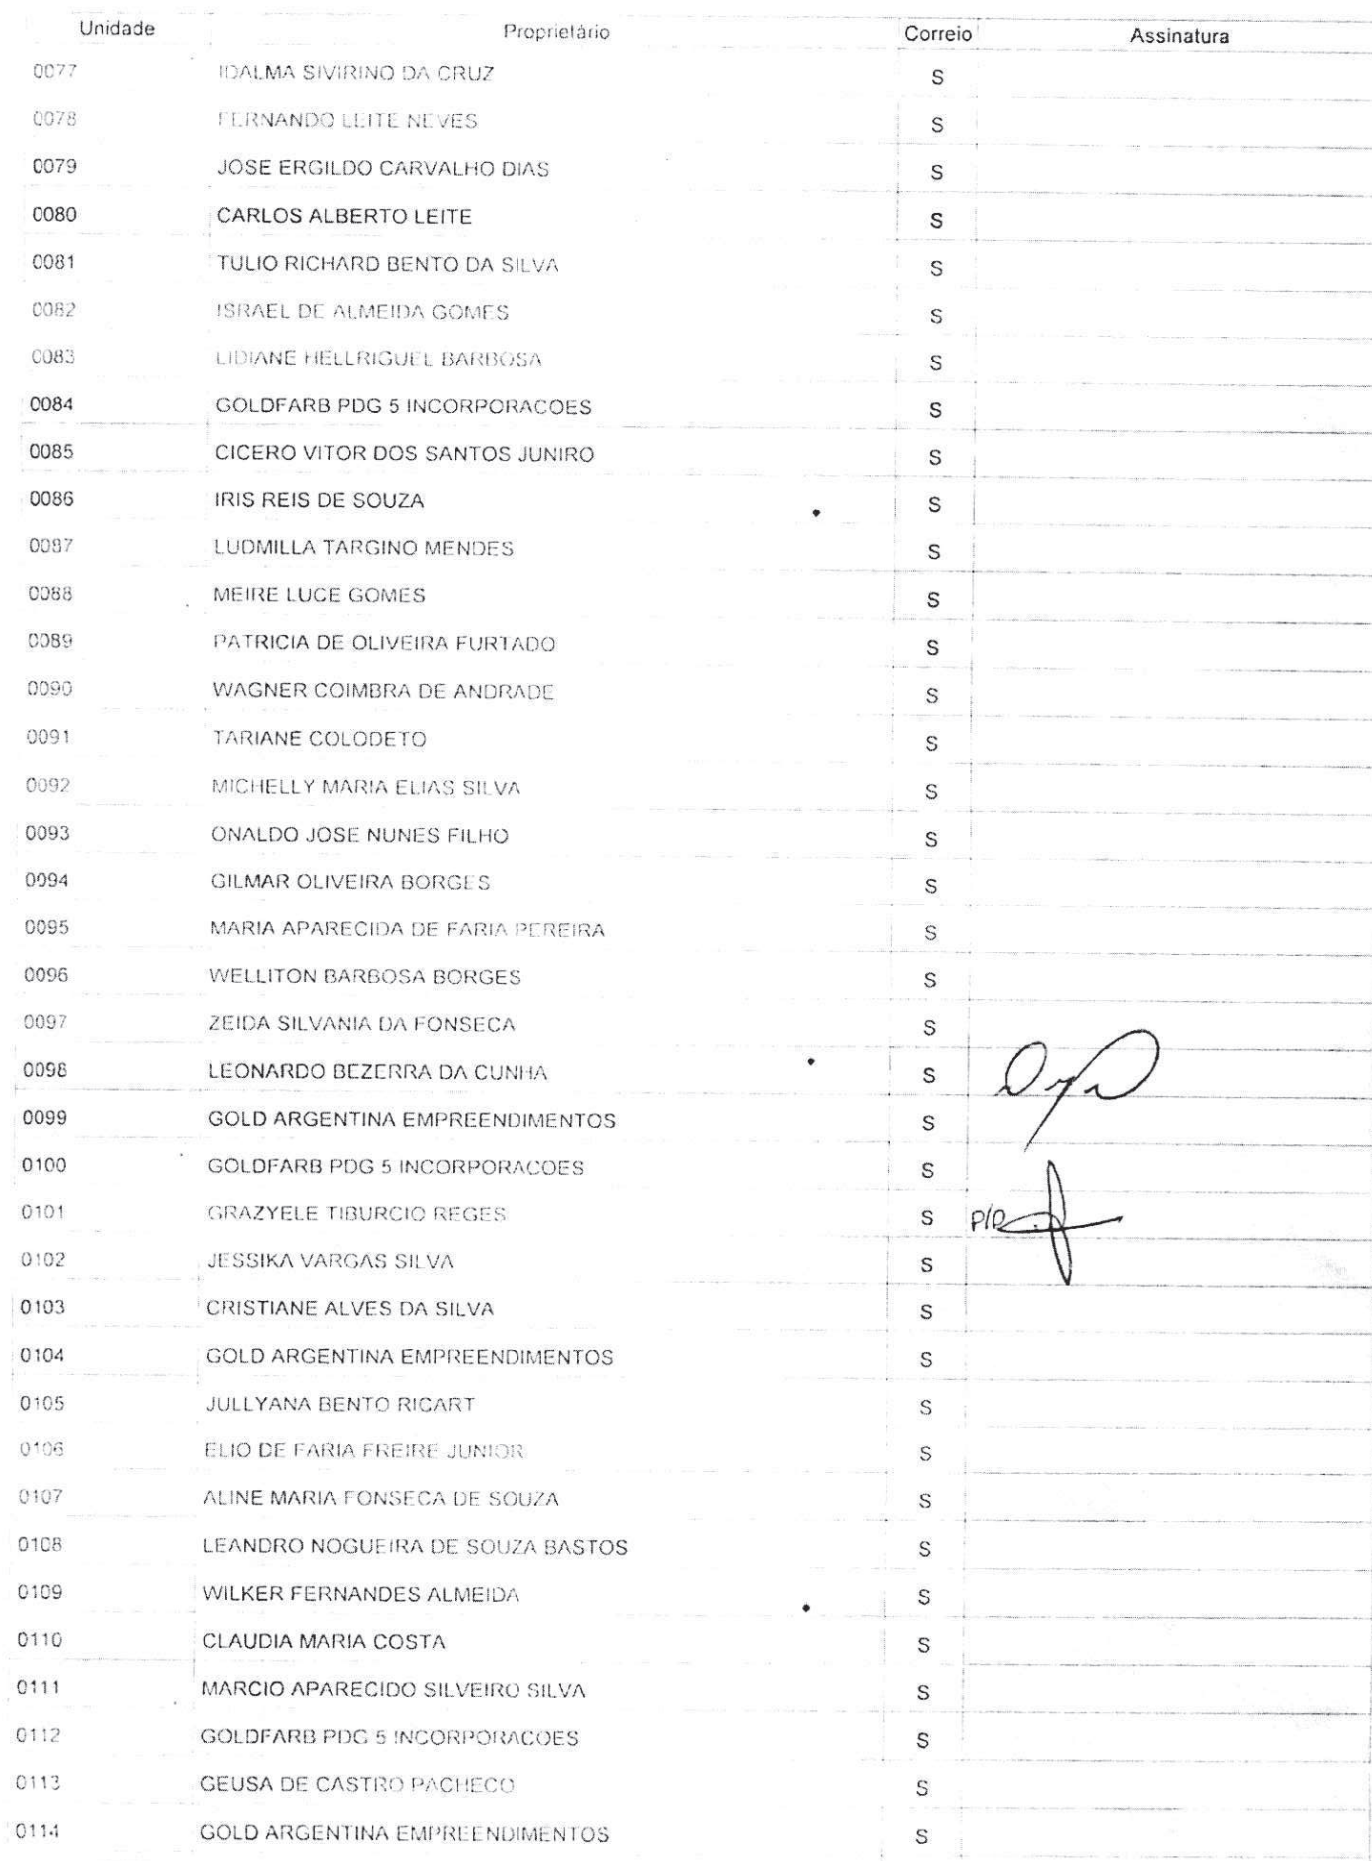 Unidade Proprietário Correio Assinatura
0077 IDALMA SIVIRINO DA CRUZ S
0078 FERNANDO LEITE NEVES S
0079 JOSE ERGILDO CARVALHO DIAS S
0080 CARLOS ALBERTO LEITE S
0081 TULIO RICHARD BENTO DA SILVA S
0082 ISRAEL DE ALMEIDA GOMES S
0083 LIDIANE HELLRIGUEL BARBOSA S
0084 GOLDFARB PDG 5 INCORPORACOES S
0085 CICERO VITOR DOS SANTOS JUNIRO S
0086 IRIS REIS DE SOUZA S
0087 LUDMILLA TARGINO MENDES S
0088 MEIRE LUCE GOMES S
0089 PATRICIA DE OLIVEIRA FURTADO S
0090 WAGNER COIMBRA DE ANDRADE S
0091 TARIANE COLODETO S
0092 MICHELLY MARIA ELIAS SILVA S
0093 ONALDO JOSE NUNES FILHO S
0094 GILMAR OLIVEIRA BORGES S
0095 MARIA APARECIDA DE FARIA PEREIRA S
0096 WELLITON BARBOSA BORGES S
0097 ZEIDA SILVANIA DA FONSECA S
0098 LEONARDO BEZERRA DA CUNHA S
0099 GOLD ARGENTINA EMPREENDIMENTOS S
0100 GOLDFARB PDG 5 INCORPORACOES S
0101 GRAZYELE TIBURCIO REGES S P/P
0102 JESSIKA VARGAS SILVA S
0103 CRISTIANE ALVES DA SILVA S
0104 GOLD ARGENTINA EMPREENDIMENTOS S
0105 JULLYANA BENTO RICART S
0106 ELIO DE FARIA FREIRE JUNIOR S
0107 ALINE MARIA FONSECA DE SOUZA S
0108 LEANDRO NOGUEIRA DE SOUZA BASTOS S
0109 WILKER FERNANDES ALMEIDA S
0110 CLAUDIA MARIA COSTA S
0111 MARCIO APARECIDO SILVEIRO SILVA S
0112 GOLDFARB PDG 5 INCORPORACOES S
0113 GEUSA DE CASTRO PACHECO S
0114 GOLD ARGENTINA EMPREENDIMENTOS S